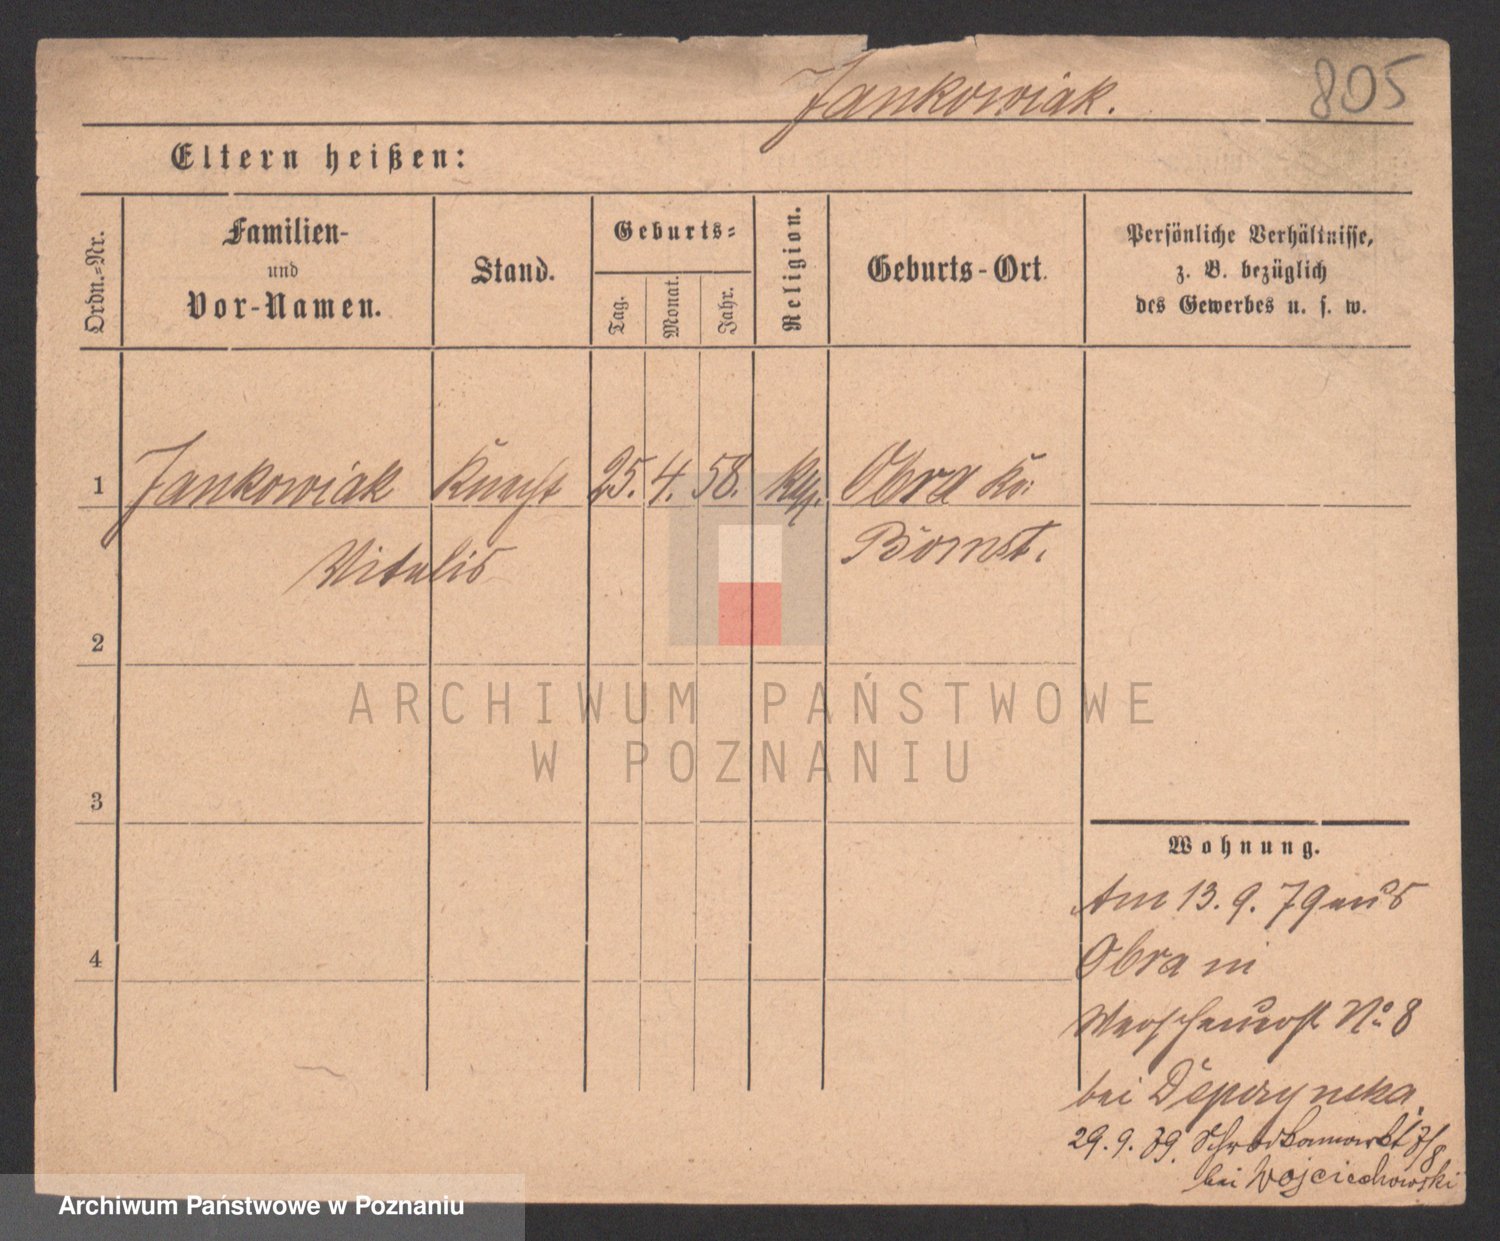 Jankowiak. 805
Eltern heißen:
Ordn.-Nr.
Familien-
und
Vor-Namen.
Stand.
Geburts-
Tag.
Monat.
Jahr.
Religion.
Geburts-Ort.
Persönliche Verhältnisse,
z. B. bezüglich
des Gewerbes u. s. w.
1 Jankowiak Knecht 25. 4. 58. kth. Obra Kr.
Vitalis Bomst.
2
3
4
ARCHIWUM PAŃSTWOWE
W POZNANIU
Wohnung.
Am 13. 9. 79 aus
Obra in
No 8
bei
29. 9. 79. 7/8
bei Wojciechowski
Archiwum Państwowe w Poznaniu